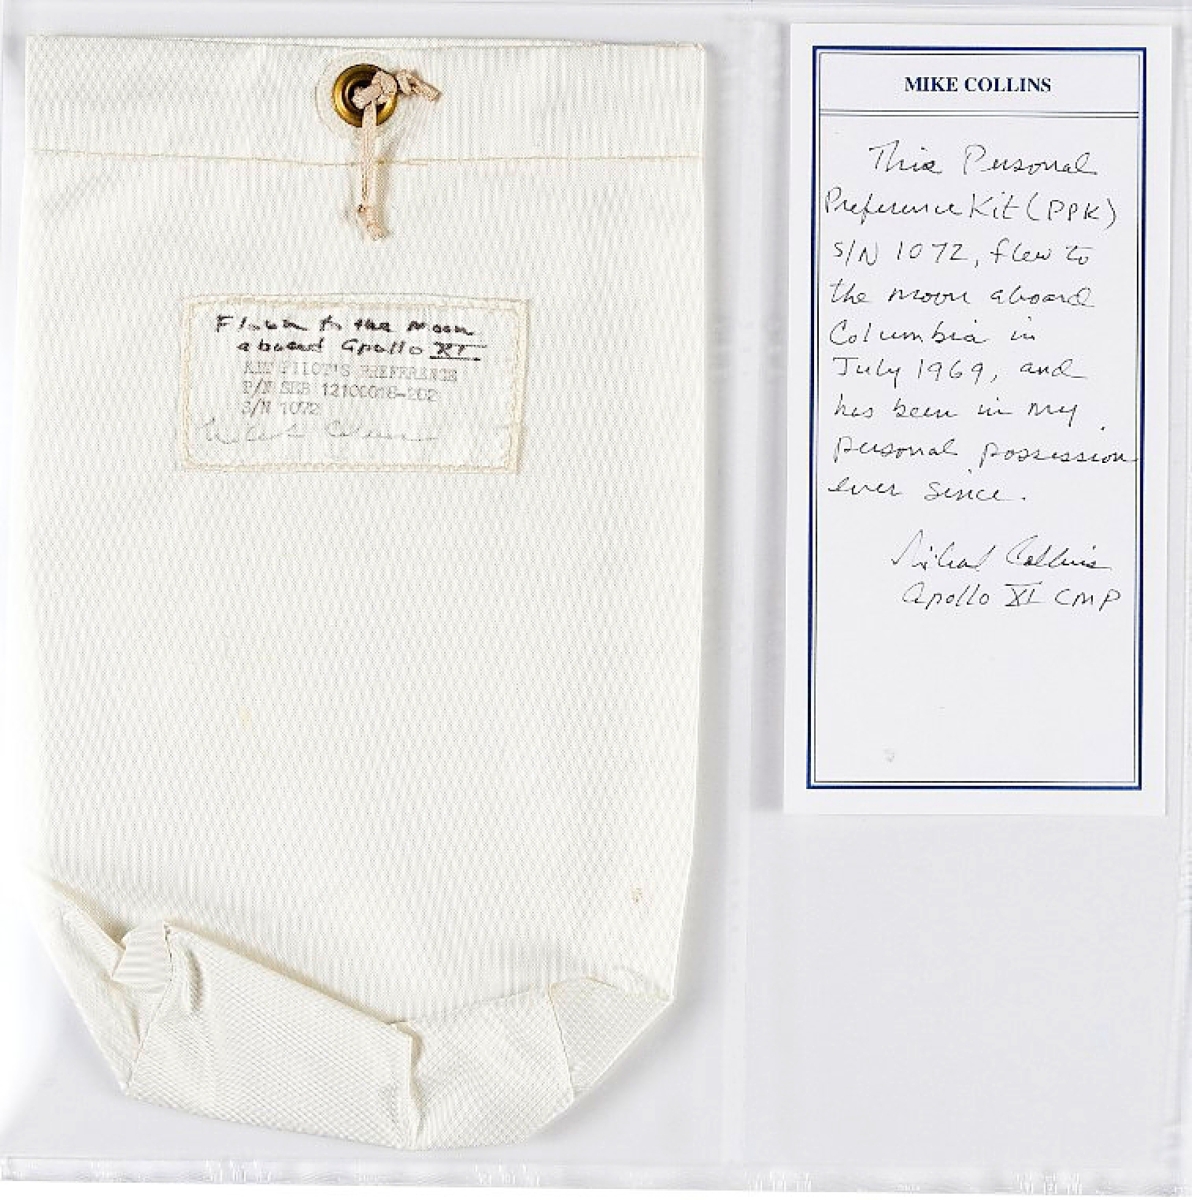 Flown to the Moon
aboard Apollo XI
KIT PILOT'S PREFERENCE
P/N SEB 12100018-202
S/N 1072
Michael Collins
MIKE COLLINS
This Personal
Preference Kit (PPK)
S/N 1072, flew to
the moon aboard
Columbia in
July 1969, and
has been in my
personal possession
ever since.
Michael Collins
Apollo XI CMP